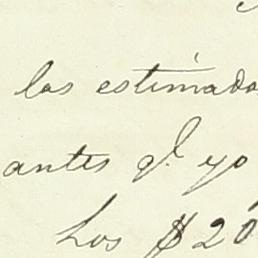 las estimada
antes q.e yo
Los $20